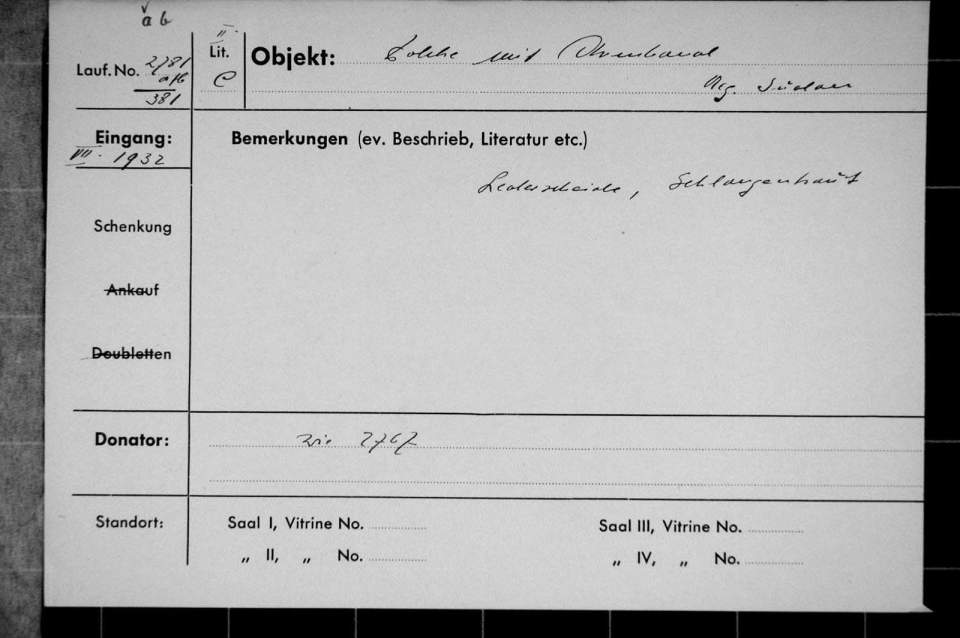 a b
II.
Lauf. No. 2781 a/b
381
Lit. C
Objekt: Dolche mit Armband
Aeg. Sudan
Eingang:
VII. 1932
Bemerkungen (ev. Beschrieb, Literatur etc.)
Lederscheide, Schlangenhaut
Schenkung
Ankauf
Doubletten
Donator: wie 2767
Standort:
Saal I, Vitrine No.
„ II, „ No.
Saal III, Vitrine No.
„ IV, „ No.